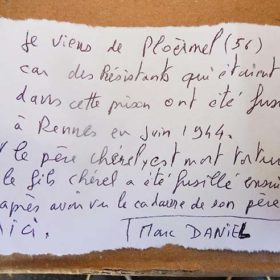 Je viens de Ploërmel (56)
car des Résistants qui étaient
dans cette prison ont été
à Rennes en juin 1944.
le père chérel, y est mort
le fils chérel a été fusillé
après avoir vu le cadavre de son père
ici.
Marc DANIEL